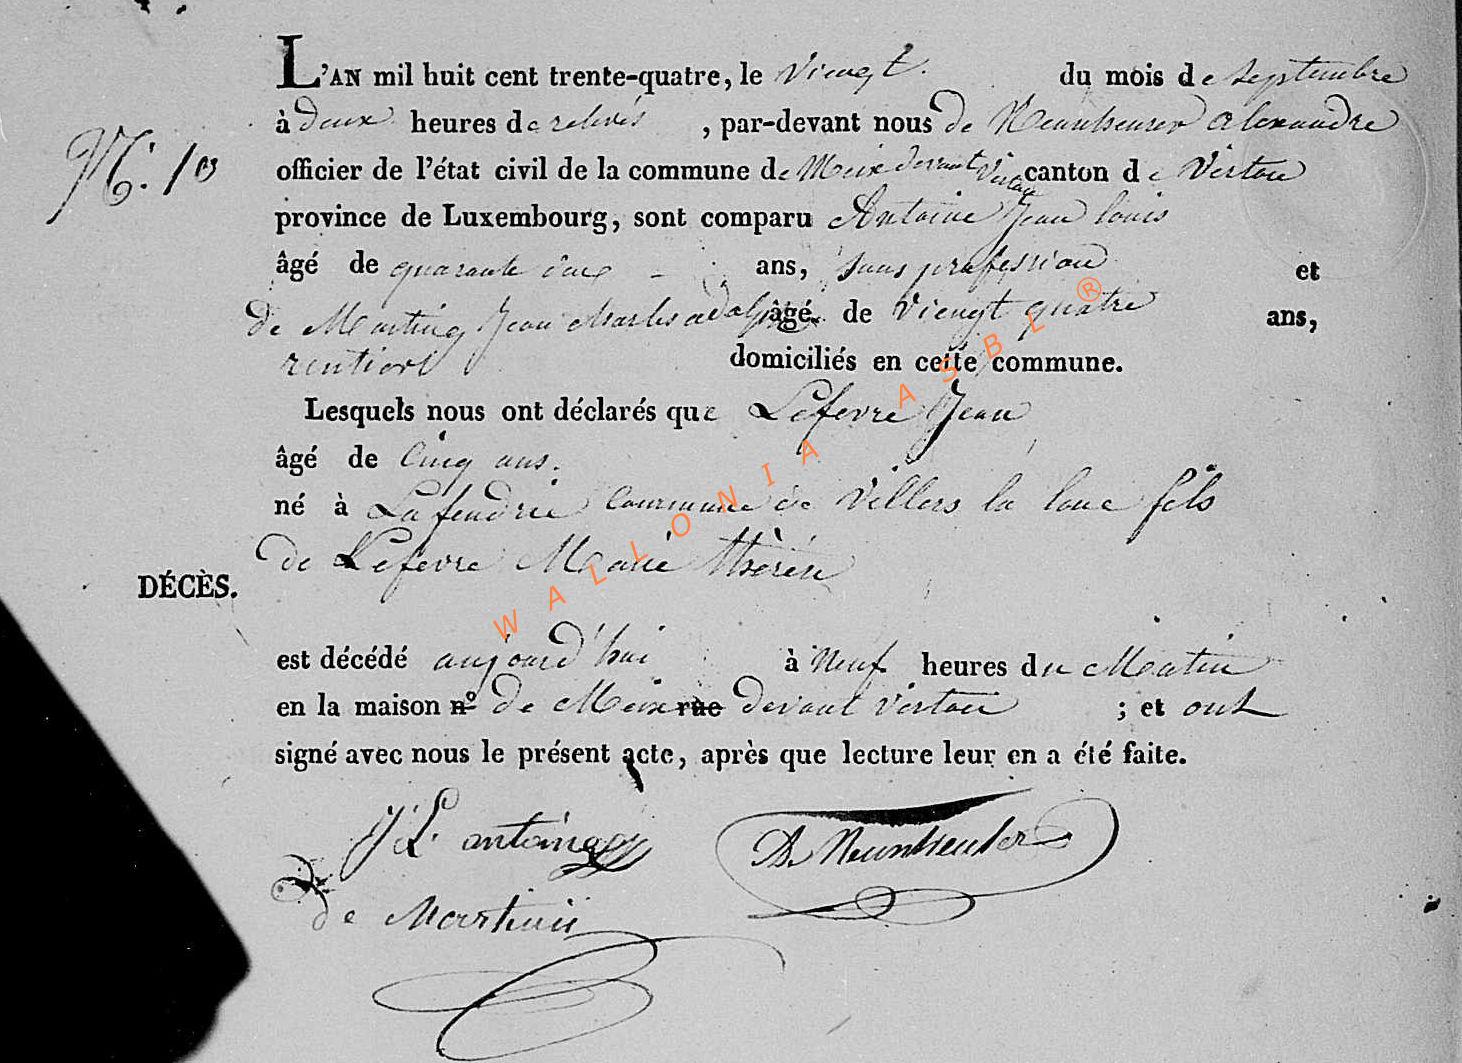 L'AN mil huit cent trente-quatre, le Viengt du mois de Septembre
à deux heures de relevés, par-devant nous de Neunheuser alexandre
N.
officier de l'état civil de la commune de Meix devant Virton canton de Virton
province de Luxembourg, sont comparu Antoine Jean louis
âgé de quarante ans, sans profession et
de Martiny Jean charles adolphe âgé de viengt quatre ans,
rentiers domiciliés en cette commune.
Lesquels nous ont déclarés que Lefevre Jean
âgé de Cinq ans.
né à Lafendrie commune de Villers la loue fils
de Lefevre Marie thérèse
DÉCÈS.
est décédé aujourd'hui à Neuf heures du Matin
en la maison n° de Meix rue devant virton ; et ont
signé avec nous le présent acte, après que lecture leur en a été faite.
JL. antoine
de Neunheuser
de Martini
WALLONIA ASBL ®